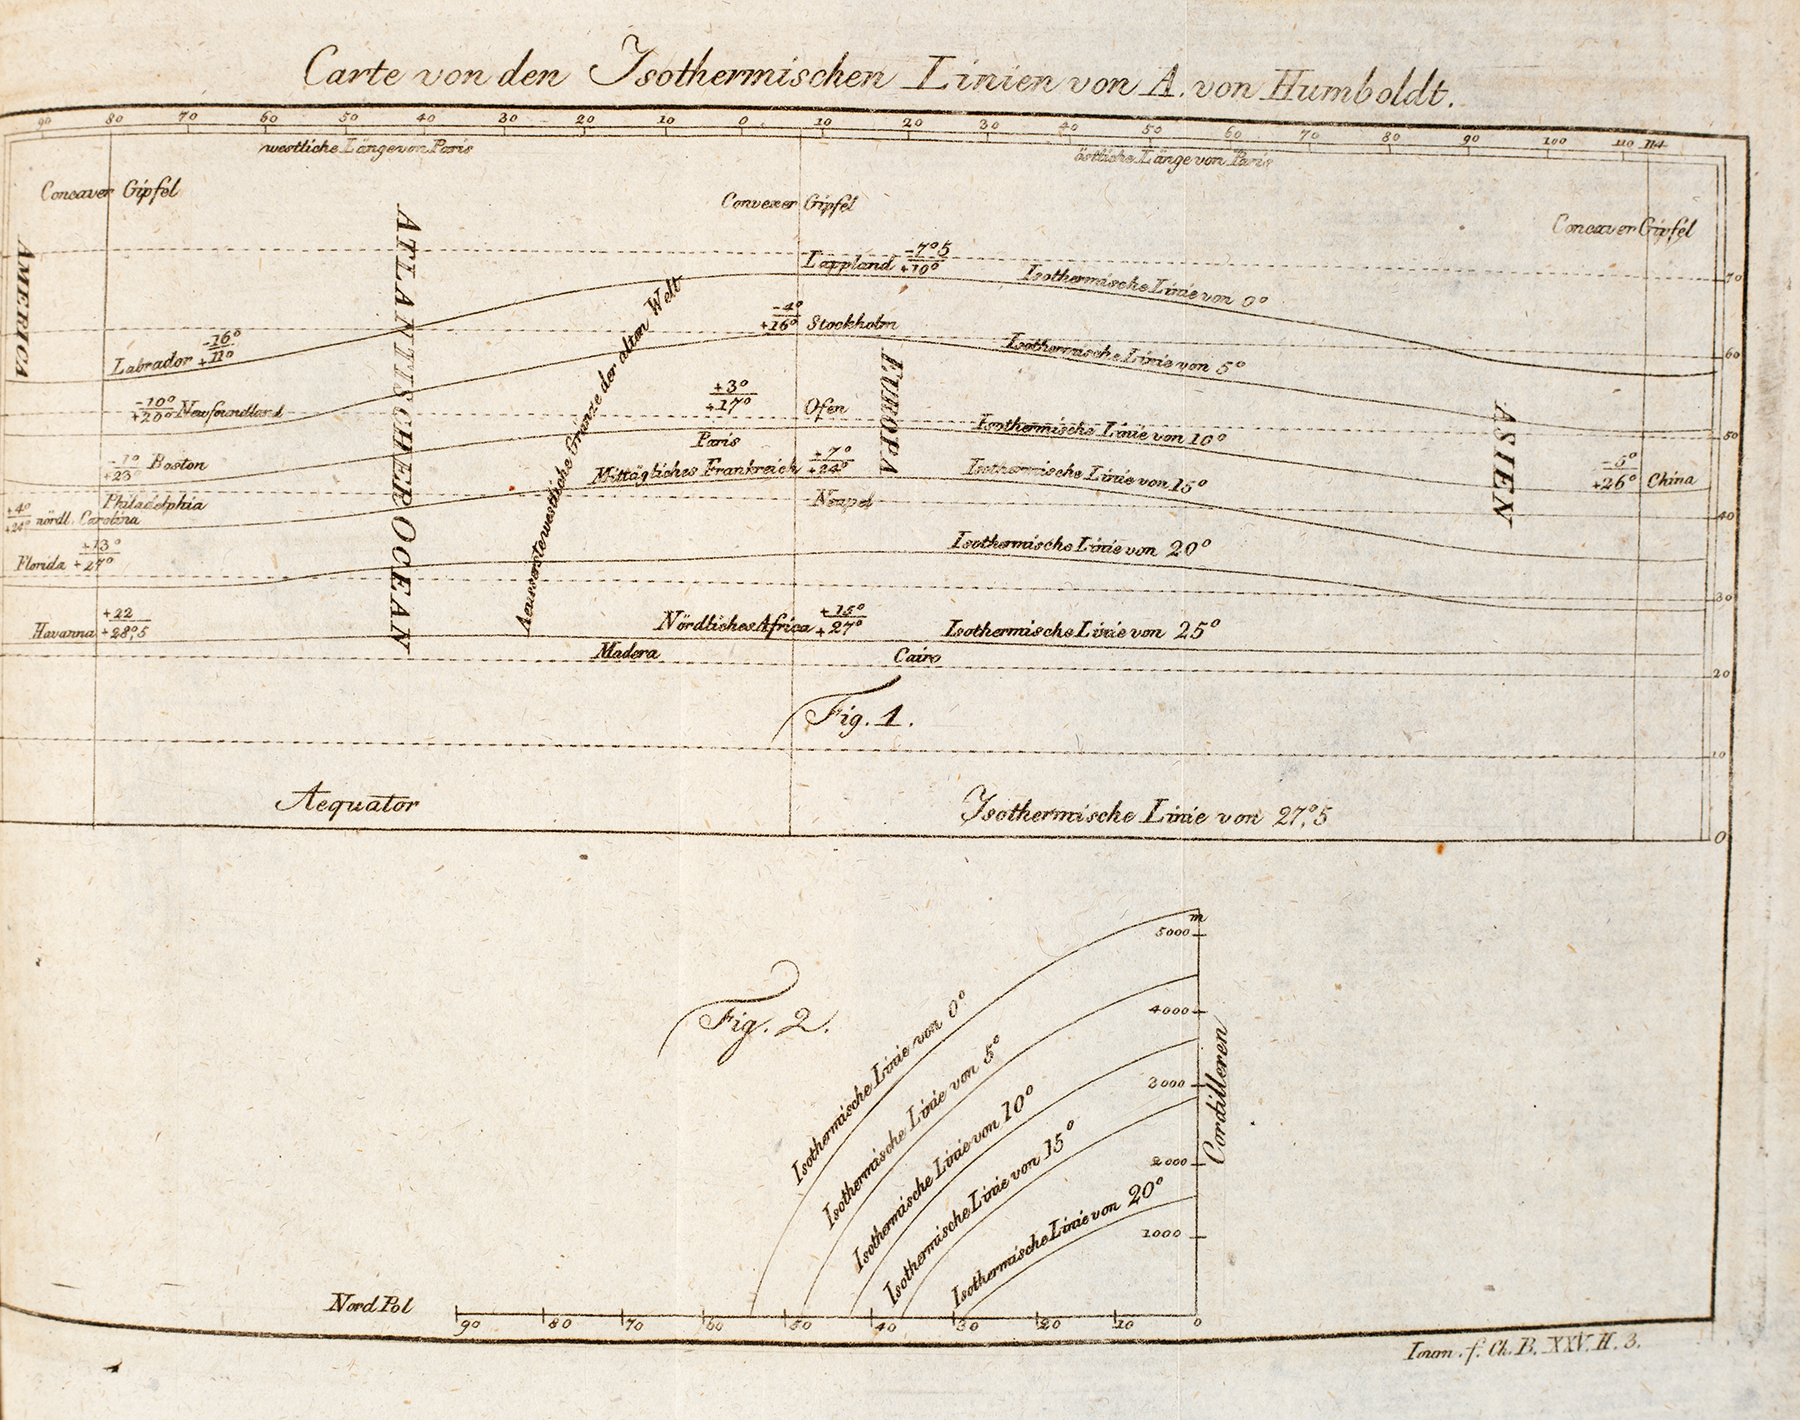 Carte von den Isothermischen Linien von A. von Humboldt.
90 80 70 60 50 40 30 20 10 0 10 20 30 40 50 60 70 80 90 100 110 114
westliche Länge von Paris
östliche Länge von Paris
Concaver Gipfel
Convexer Gipfel
Concaver Gipfel
AMERICA
ATLANTISCHER OCEAN
EUROPA
ASIEN
Aeusserste westliche Gränze der alten Welt
Lappland -7°5
+10°
Isothermische Linie von 0°
70
-4°
+16° Stockholm
Labrador -16°
+11°
Isothermische Linie von 5°
60
-10°
+20° Newfoundland
+3°
+17°
Ofen
Isothermische Linie von 10°
50
Paris
-1° Boston
+23°
Mittägliches Frankreich +7°
+24°
Isothermische Linie von 15°
-5°
+26° China
Philadelphia
Neapel
+4°
+24° nördl. Carolina
40
+13°
Florida +27°
Isothermische Linie von 20°
30
+22
Havanna +28°,5
Nördliches Africa +15°
+27°
Isothermische Linie von 25°
Madera
Cairo
20
Fig. 1.
10
Aequator
Isothermische Linie von 27°,5
0
Fig. 2.
m
5000
4000
3000
2000
1000
Cordilleren
Isothermische Linie von 0°
Isothermische Linie von 5°
Isothermische Linie von 10°
Isothermische Linie von 15°
Isothermische Linie von 20°
Nord Pol
90 80 70 60 50 40 30 20 10 0
Journ. f. Ch. B. XXV. H. 3.